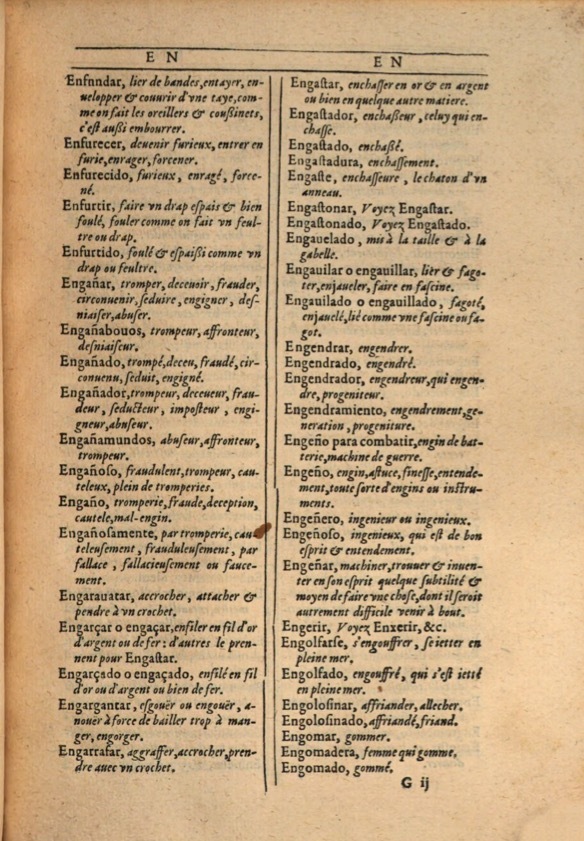 EN
EN
Enfundar, lier de bandes,entayer, en-
uelopper & couurir d'vne taye,com-
me on fait les oreillers & coußinets,
c'est außi embourrer.
Enfurecer, deuenir furieux, entrer en
furie,enrager, forcener.
Enfurecido, furieux, enragé, force-
né.
Enfurtir, faire vn drap espais & bien
foulé, fouler comme on fait vn feul-
tre ou drap.
Enfurtido, foulé & espaißi comme vn
drap ou feultre.
Engañar, tromper, deceuoir, frauder,
circonuenir, seduire, engigner, des-
niaiser,abuser.
Engañabouos, trompeur, affronteur,
desniaiseur.
Engañado, trompé,deceu, fraudé,cir-
conuenu, seduit, engigné.
Engañador,trompeur, deceueur, frau-
deur, seducteur, imposteur, engi-
gneur,abuseur.
Engañamundos, abuseur,affronteur,
trompeur.
Engañoso, fraudulent,trompeur, cau-
teleux, plein de tromperies.
Engaño, tromperie,fraude,deception,
cautele,mal-engin.
Engañosamente, par tromperie, cau-
teleusement, frauduleusement, par
fallace, fallacieusement ou faulce-
ment.
Engarauatar, accrocher, attacher &
pendre à vn crochet.
Engarçar o engaçar,enfiler en fil d'or
d'argent ou de fer: d'autres le pren-
nent pour Engastar.
Engarçado o engaçado, enfilé en fil
d'or ou d'argent ou bien de fer.
Engargantar, esgouër ou engouër, a-
nouër à force de bailler trop à man-
ger, engorger.
Engarrafar, aggraffer,accrocher,pren-
dre auec vn crochet.
Engastar, enchasser en or & en argent
ou bien en quelque autre matiere.
Engastador, enchaßeur, celuy qui en-
chasse.
Engastado, enchaßé.
Engastadura, enchassement.
Engaste, enchasseure, le chaton d'vn
anneau.
Engastonar, Voyez Engastar.
Engastonado, Voyez Engastado.
Engauelado, mis à la taille & à la
gabelle.
Engauilar o engauillar, liër & fago-
ter,enjaueler, faire en fascine.
Engauilado o engauillado, fagoté,
enjauelé,lié comme vne fascine ou fa-
got.
Engendrar, engendrer.
Engendrado, engendré.
Engendrador, engendreur,qui engen-
dre, progeniteur.
Engendramiento, engendrement,ge-
neration, progeniture.
Engeño para combatir,engin de bat-
terie,machine de guerre.
Engeño, engin,astuce,finesse,entende-
ment,toute sorte d'engins ou instru-
ments.
Engeñero, ingenieur ou ingenieux.
Engeñoso, ingenieux, qui est de bon
esprit & entendement.
Engeñar, machiner,trouuer & inuen-
ter en son esprit quelque subtilité &
moyen de faire vne chose,dont il seroit
autrement difficile venir à bout.
Engerir, Voyez Enxerir,&c.
Engolfarse, s'engouffrer, se ietter en
pleine mer.
Engolfado, engouffré, qui s'est ietté
en pleine mer.
Engolosinar, affriander, allecher.
Engolosinado,affriandé,friand.
Engomar, gommer.
Engomadera, femme qui gomme.
Engomado, gommé.
G ij